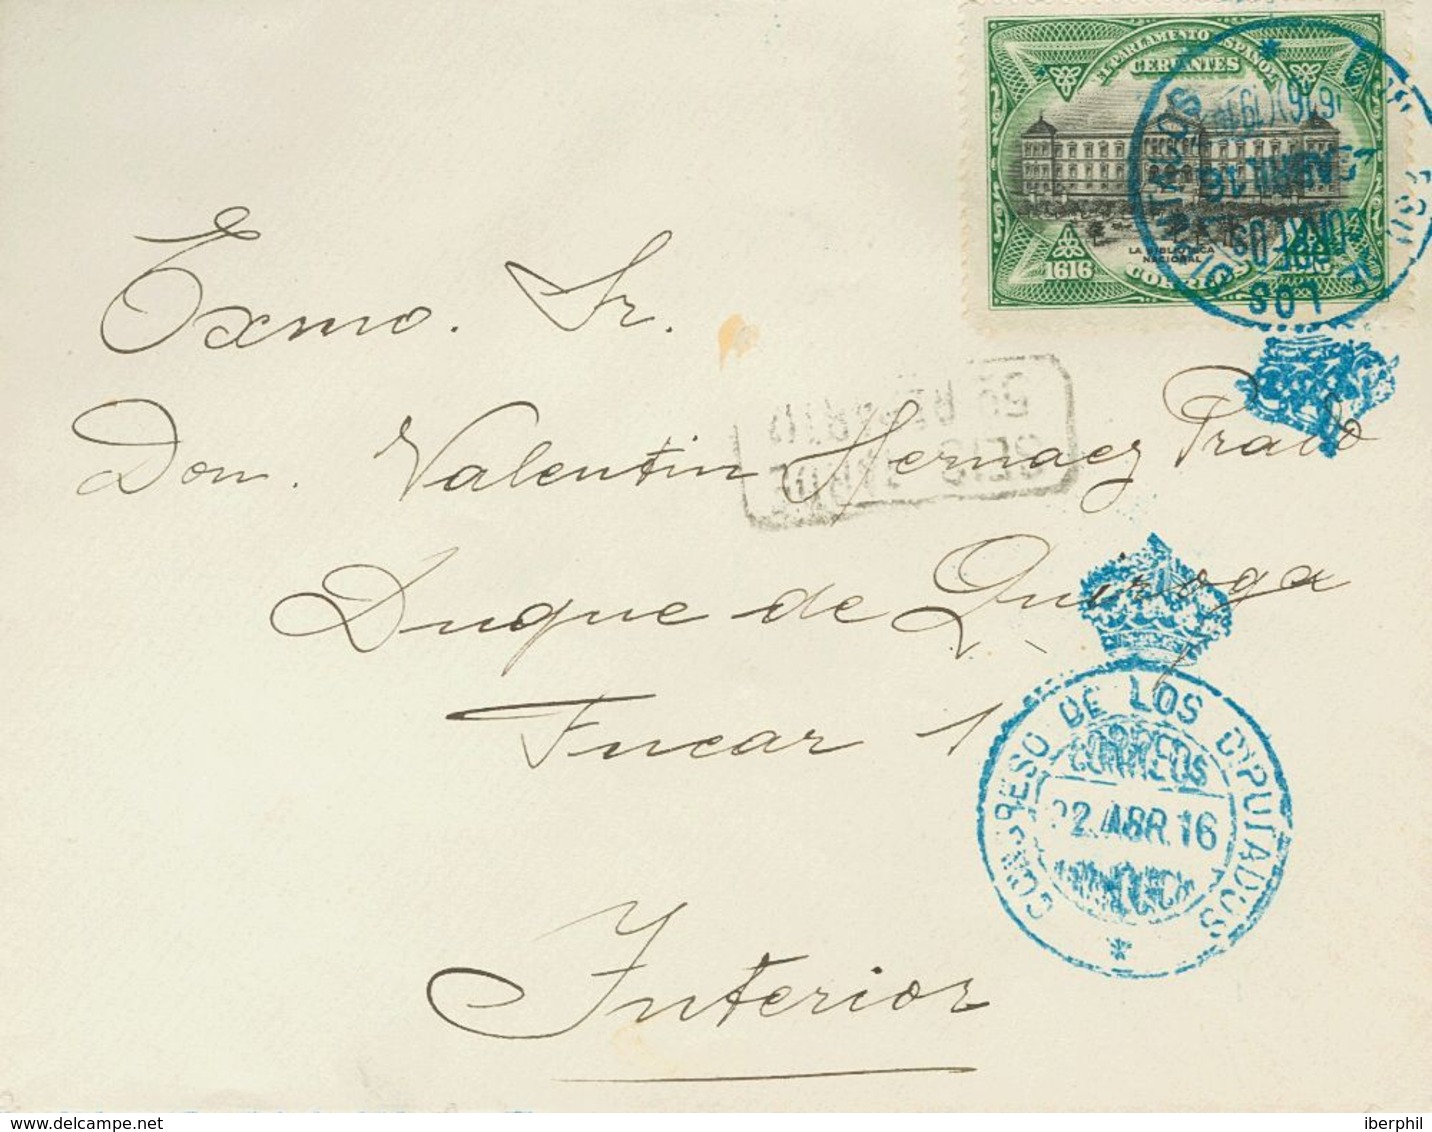 EL PARLAMENTO ESPAÑOL A
CERVANTES
LA BIBLIOTECA
NACIONAL
1616 CORREOS 1916
LOS
Exmo. Sr.
Don. Valentin Hernaez Prado
Duque de Quiroga
Fucar 1
Interior
CONGRESO DE LOS DIPUTADOS
CORREOS
22.ABR.16
delcampe.net
iberphil